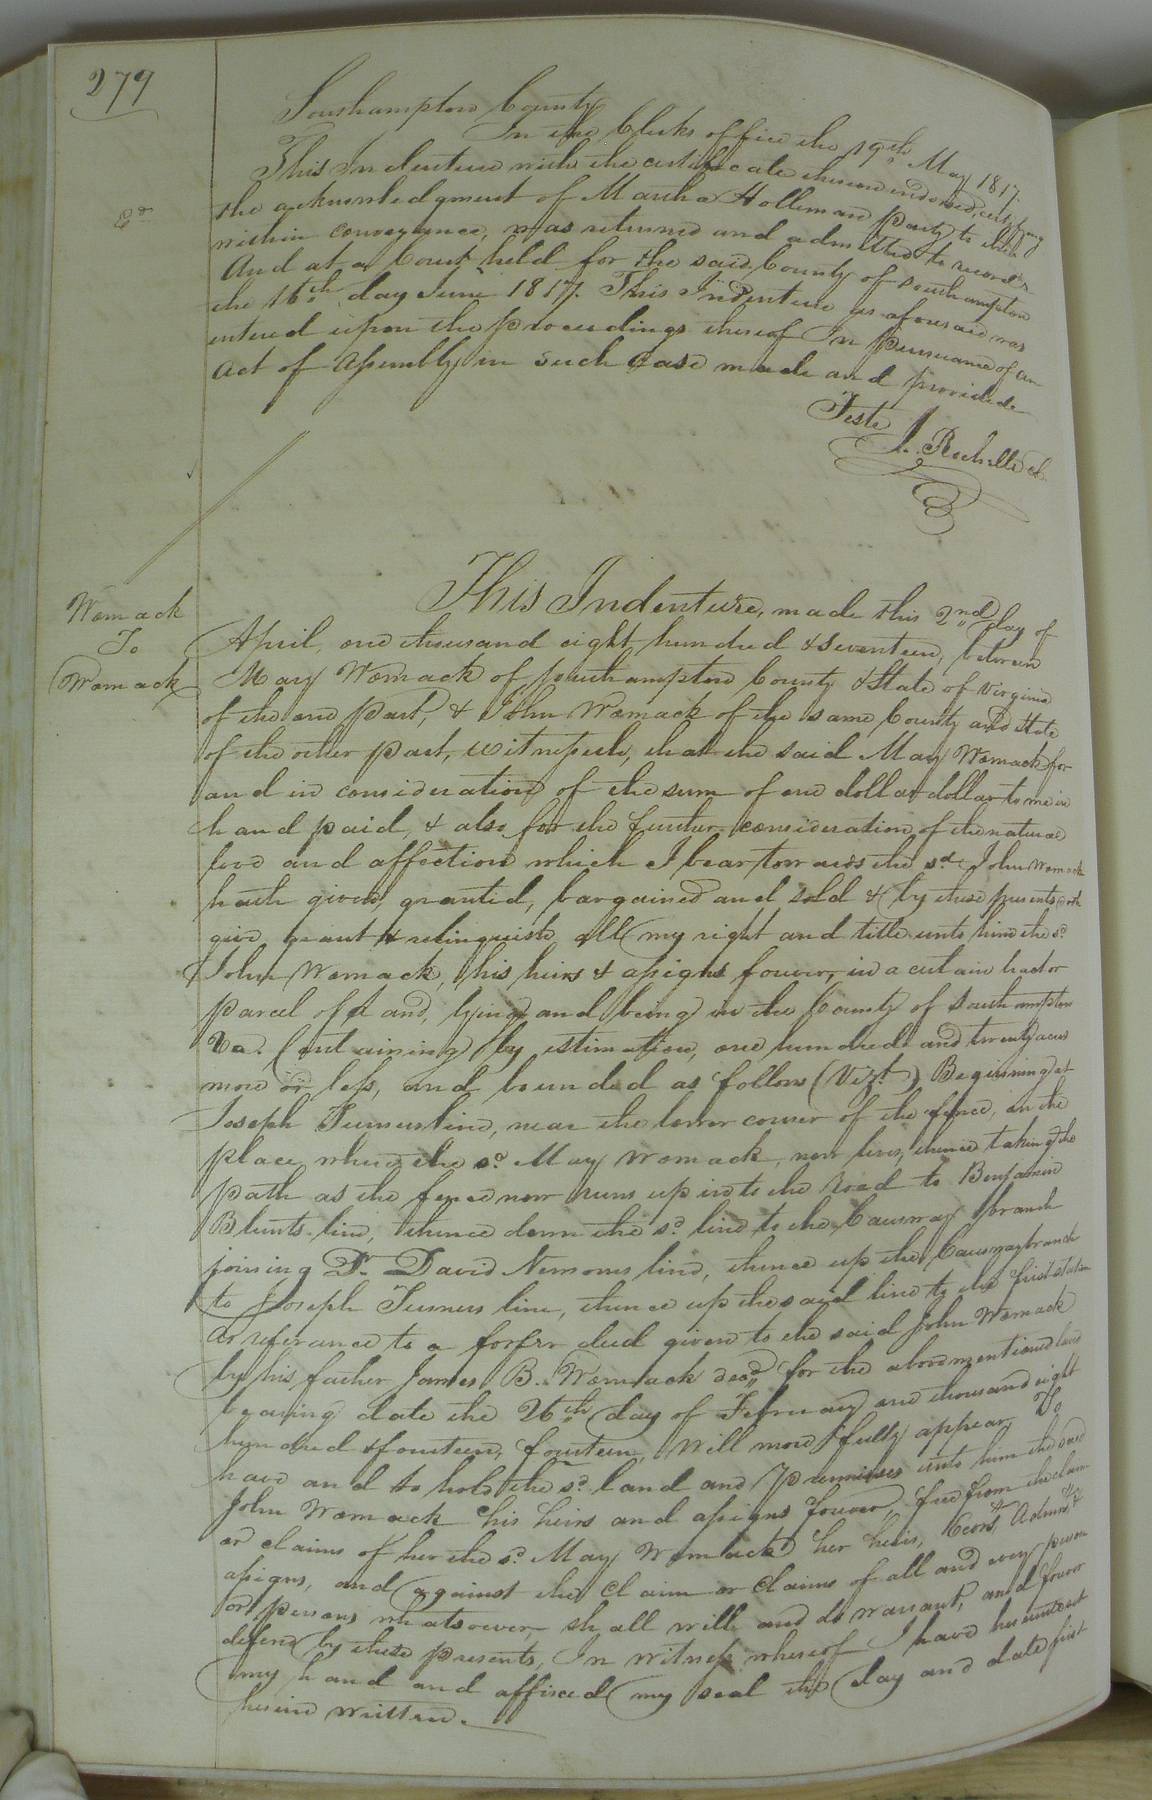 279
Southampton County
In the Clerks office the 19th May 1817.
This Indenture with the certificate thereon endorsed, certifying
the acknowledgment of Martha Holleman party to the
within conveyance, was returned and admitted to record,
And at a Court held for the said County of Southampton
the 16th day June 1817. This Indenture as aforesaid was
entered upon the proceedings thereof In pursuance of an
Act of Assembly in such case made and provided
Teste
J. Rochelle cl
Womack
To
Womack
This Indenture, made this 2nd day of
April, one thousand eight hundred & seventeen, between
Mary Womack of Southampton County & State of Virginia
of the one part, & John Womack of the same County and State
of the other part, witnesseth, that the said Mary Womack for
and in consideration of the sum of one dollar dollar to me in
hand paid, & also for the further consideration of the natural
love and affection which I bear towards the sd. John Womack
hath given, granted, bargained and sold & by these presents doth
give grant & relinquish all my right and title unto him the sd.
John Womack, his heirs & assigns forever, in a certain tract or
parcel of Land, lying and being in the County of Southampton
Va. Containing by estimation, one hundred and twenty acres
more or less, and bounded as follows (Vizt.) Beginning at
Joseph Turners line, near the lower corner of the fence, on the
place where the sd. Mary Womack, now lives, thence taking the
path as the fence now runs up into the Road to Benjamin
Blunts line, thence down the sd. line to the Causway branch
joining Dr. David Newsoms line, thence up the Causwaybranch
to Joseph Turners line, thence up the said line to the first station
As referance to a forfer deed given to the said John Womack
by his father James B. Womack decd. for the abovementioned land
bearing date the 26th day of February one thousand eight
hundred & fourteen, fourteen, Will more fully appear, To
have and to hold the sd. land and premises unto him the said
John Womack his heirs and assigns forever, free from the claim
or claims of her the sd. Mary Womack her heirs, Exors, Admrs, &
assigns, and against the claim or claims of all and every person
or persons whatsoever, shall will and do warrant, and forever
defend by these presents, In witness whereof I have hereunto set
my hand and affixed my seal the day and date first
herein written.